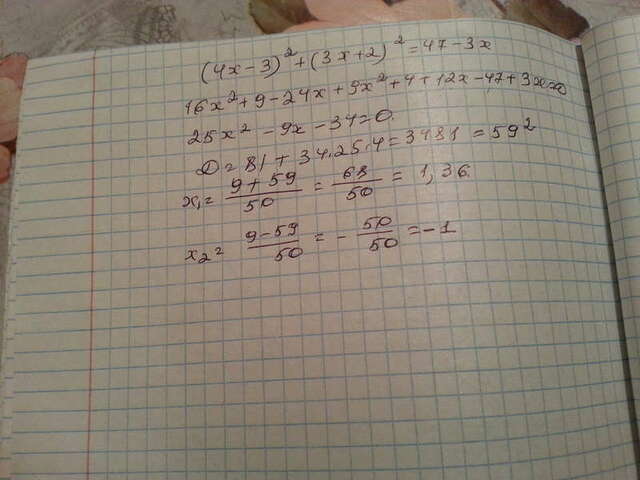 (4x-3)² + (3x+2)² = 47-3x
16x²+9-24x+9x²+4+12x-47+3x=0
25x² - 9x - 34=0.
D = 81 + 34·25·4 = 3481 = 59²
x₁= (9+59)/50 = 68/50 = 1,36.
x₂= (9-59)/50 = - 50/50 = -1